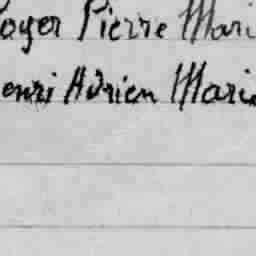 oger Pierre Mari
enri Adrien Marie